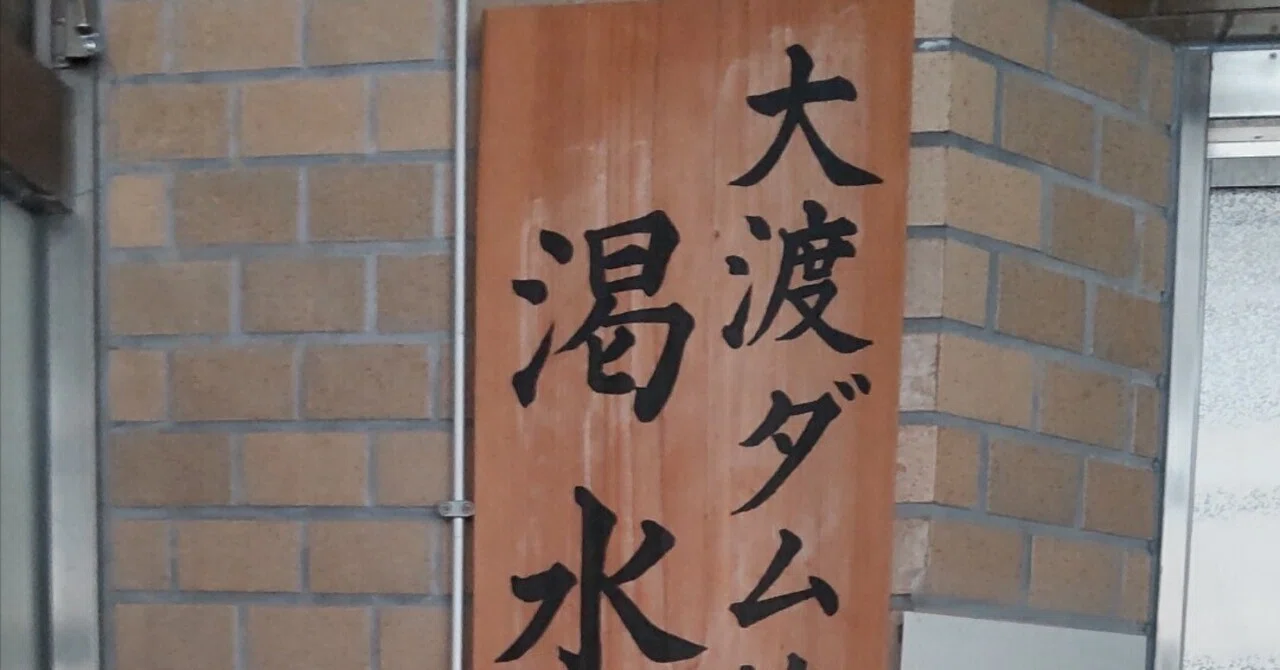 大渡ダム
渇水